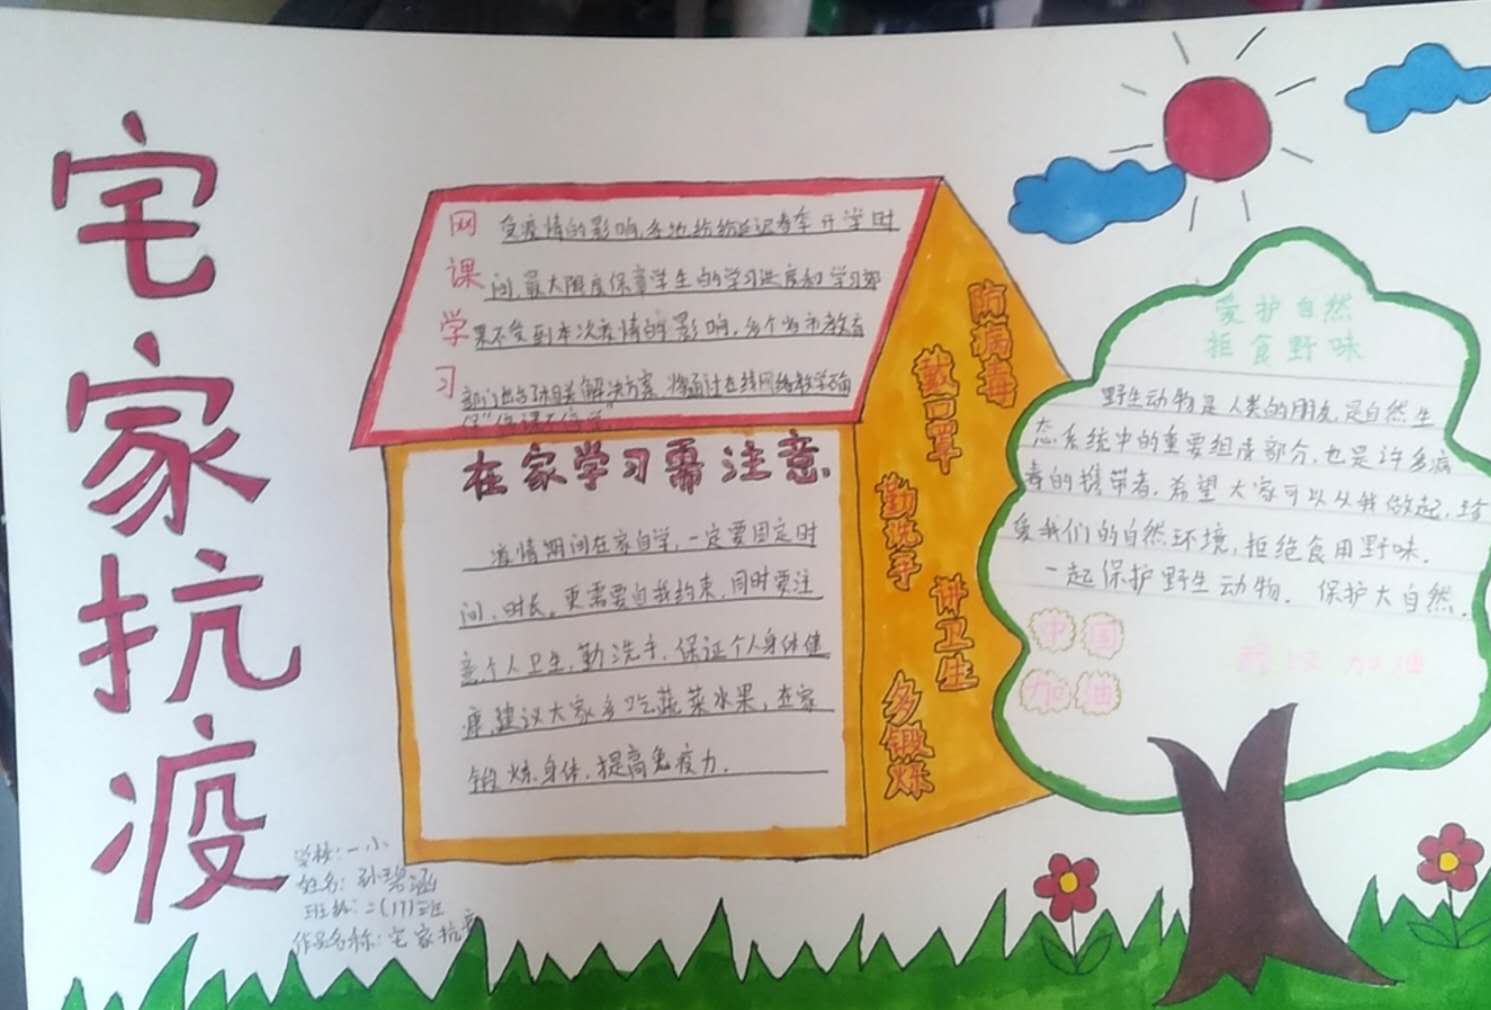 宅家抗疫
网课学习
受疫情的影响,各地纷纷延迟春季开学时
间,最大限度保障学生的学习进度和学习效
果不受到本次疫情的影响,多个省市教育
部门出台了相关解决方案,将通过在线网络教学确
保“停课不停学”
在家学习需注意
疫情期间在家自学,一定要固定时
间、时长。更需要自我约束,同时要注
意个人卫生,勤洗手,保证个人身体健
康,建议大家多吃蔬菜水果,在家
锻炼身体,提高免疫力.
防病毒
戴口罩
勤洗手
讲卫生
多锻炼
爱护自然
拒食野味
野生动物是人类的朋友,是自然生
态系统中的重要组成部分,也是许多病
毒的携带者,希望大家可以从我做起,珍
爱我们的自然环境,拒绝食用野味.
一起保护野生动物.保护大自然.
中国
加油
武汉加油
学校:一小
姓名:孙碧涵
班级:二(17)班
作品名称:宅家抗疫